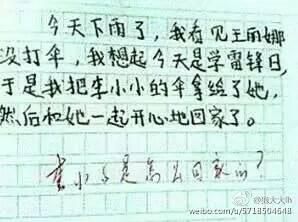 今天下雨了，我看见王雨娜
没打伞，我想起今天是学雷锋日，
于是我把李小小的伞拿给了她，
然后和她一起开心地回家了。
李小小是怎么回家的？
@猴大大山
weibo.com/u/5718504648